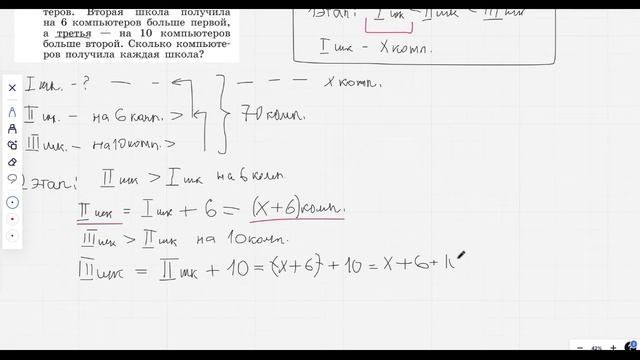 теров. Вторая школа получила
на 6 компьютеров больше первой,
а третья — на 10 компьютеров
больше второй. Сколько компьюте-
ров получила каждая школа?
I этап: I шк – II шк – III шк
I шк – x комп.
I шк. – ? – – – – – x комп.
II шк. – на 6 комп. >
70 комп.
III шк. – на 10 комп. >
2 этап: II шк > I шк на 6 комп.
II шк = I шк + 6 = (x+6) комп.
III шк > II шк на 10 комп.
III шк = II шк + 10 = (x+6) + 10 = x + 6 + 1
42%